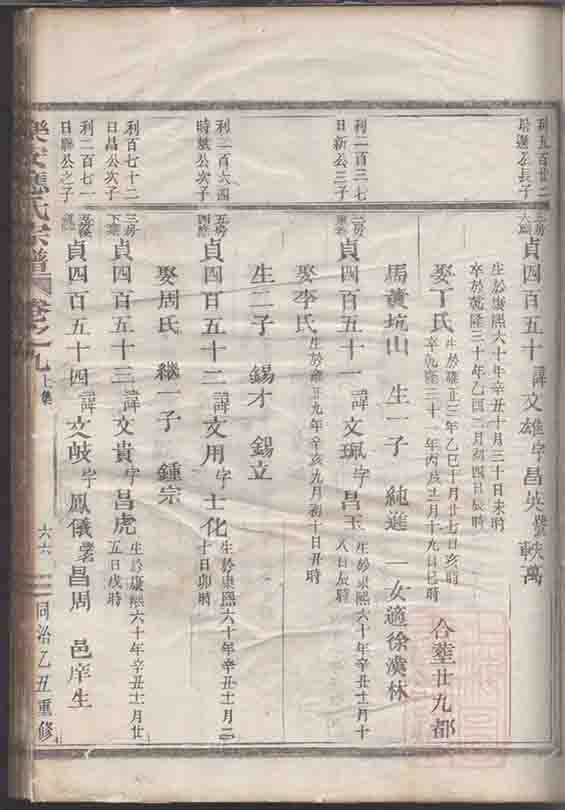 利五百廿二
公長子
三房
貞四百五十 諱文雄 字昌英 號軼萬
生於康熙六十年辛丑十月三十日未時
卒於乾隆三十年乙酉二月初四日辰時
娶丁氏 生於雍正三年乙巳十月廿七日亥時
卒乾隆三十一年丙戌十二月十九日巳時 合塟廿九都
馬黄坑山 生一子 純進 一女適徐漢林
利二百三七
日新公三子
貞四百五十一 諱文珮 字昌玉 生於康熙六十年辛丑十二月十
八日辰時
娶李氏 生於雍正九年辛亥九月初十日丑時
生二子 錫才 錫立
利二百六四
時 公次子
五房
貞四百五十二 諱文用 字士化 生於康熙六十年辛丑十二月二
十日卯時
娶周氏 繼一子 鍾宗
利百七十二
日昌公次子
三房
貞四百五十三 諱文貴 字昌虎 生於康熙六十年辛丑十二月廿
五日戌時
利二百七一
日聯公之子
貞四百五十四 諱文岐 字鳳儀 昌周 邑庠生
樂安應氏宗譜 卷之九 上集 六六 同治乙丑重修